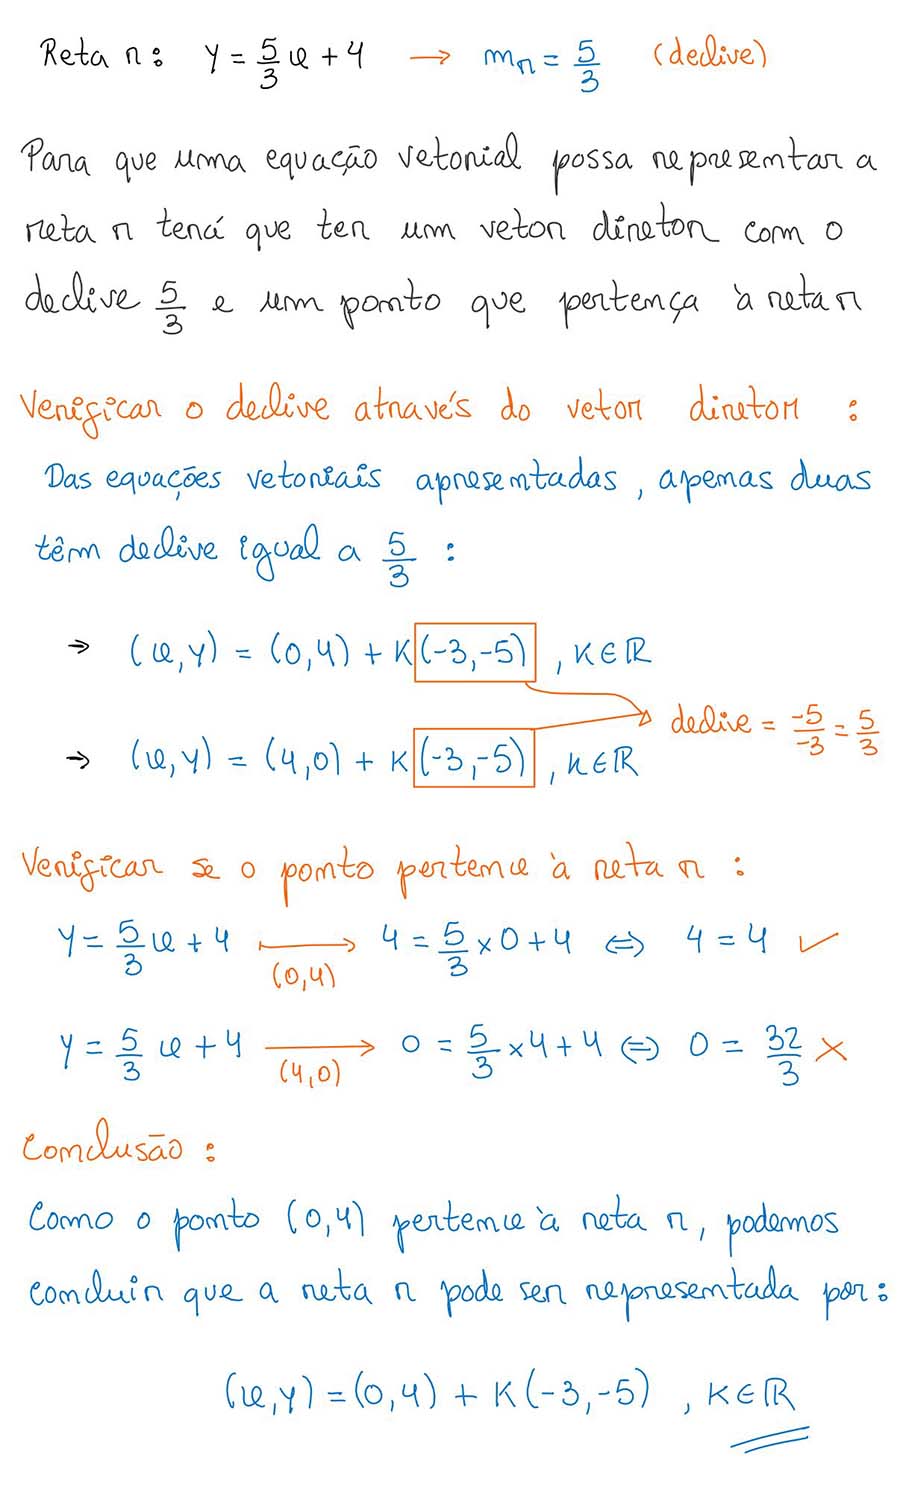 Reta r: y = 5/3 x + 4 → mᵣ = 5/3 (declive)
Para que uma equação vetorial possa representar a
reta r terá que ter um vetor diretor com o
declive 5/3 e um ponto que pertença à reta r
Verificar o declive através do vetor diretor :
Das equações vetoriais apresentadas, apenas duas
têm declive igual a 5/3 :
→ (x,y) = (0,4) + K(-3,-5) , K∈ℝ
declive = -5/-3 = 5/3
→ (x,y) = (4,0) + K(-3,-5) , K∈ℝ
Verificar se o ponto pertence à reta r :
y = 5/3 x + 4 ⟼ (0,4) 4 = 5/3 × 0 + 4 ⇔ 4 = 4 ✓
y = 5/3 x + 4 ⟶ (4,0) 0 = 5/3 × 4 + 4 ⇔ 0 = 32/3 ×
Conclusão :
Como o ponto (0,4) pertence à reta r, podemos
concluir que a reta r pode ser representada por:
(x,y) = (0,4) + K(-3,-5) , K∈ℝ